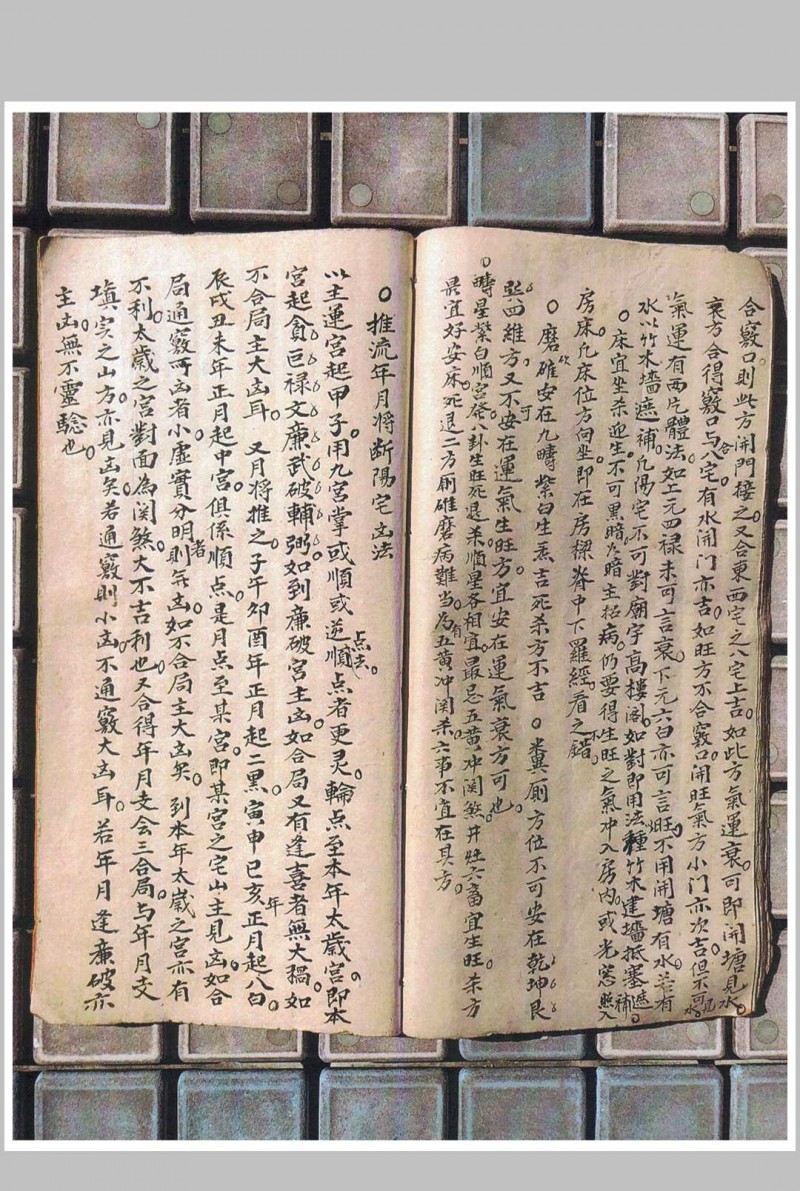 合竅口則此方開門接之又合東西宅之八宅上吉如此方氣運衰可即開塘見水
衰方合得竅口与八宅合有水開门亦吉如旺方不合竅口開旺氣方小门亦次吉但不可見水
氣運有両片體法如上元四禄未可言衰下元六白亦可言旺不用開塘有水若有
水以竹木墻遮補凡陽宅不可對廟宇高樓阁如對即用法種竹木建墻抵塞遮補
○床宜坐杀迎生不可黑暗暗主招病仍要得生旺之氣冲入房内或光窓照入
房床凡床位方向坐即在房樑脊中下羅經看之不錯
○磨碓安在九疇紫白生炁吉死杀方不吉 ○粪厠方位不可安在乾坤艮
巽四維方又不可安在運氣生旺方宜安在運氣衰方可也
○疇星紫白順宮發八卦生旺死退杀順星各相宜最忌五黄冲関煞井灶六畜宜生旺杀方
畏宜好安床死退二方厠碓磨病難当为有五黄冲関杀六事不宜在其方
○推流年月將断陽宅凶法
以主運宮起甲子用九宮掌或順或逆順点去点者更灵輪点至本年太歲宮即本
宮起貪巨禄文廉武破輔弼如到廉破宮主凶如合局又有逢喜者無大禍如
不合局主大凶耳 又月將推之子午卯酉年正月起二黒寅申巳亥年正月起八白
辰戌丑未年正月起中宮俱係順点是月点至某宮即某宮之宅山主見凶如合
局通竅可凶者小虚實分明者則無凶如不合局主大凶矣 到本年太歲之宮亦有
不利太歲之宮對面為関煞大不吉利也又合得年月支会三合局与年月支
填实之山方亦見凶矣若通竅則小凶不通竅大凶耳 若年月逢廉破亦
主凶無不靈驗也